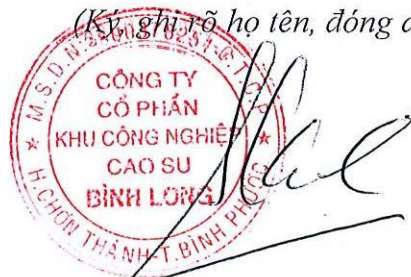 (Ký, ghi rõ họ tên, đóng d
CÔNG TY
CỔ PHẦN
KHU CÔNG NGHIỆP
CAO SU
BÌNH LONG
M.S.D.N:
H.CHƠN THÀNH-T.BÌNH PHƯỚC